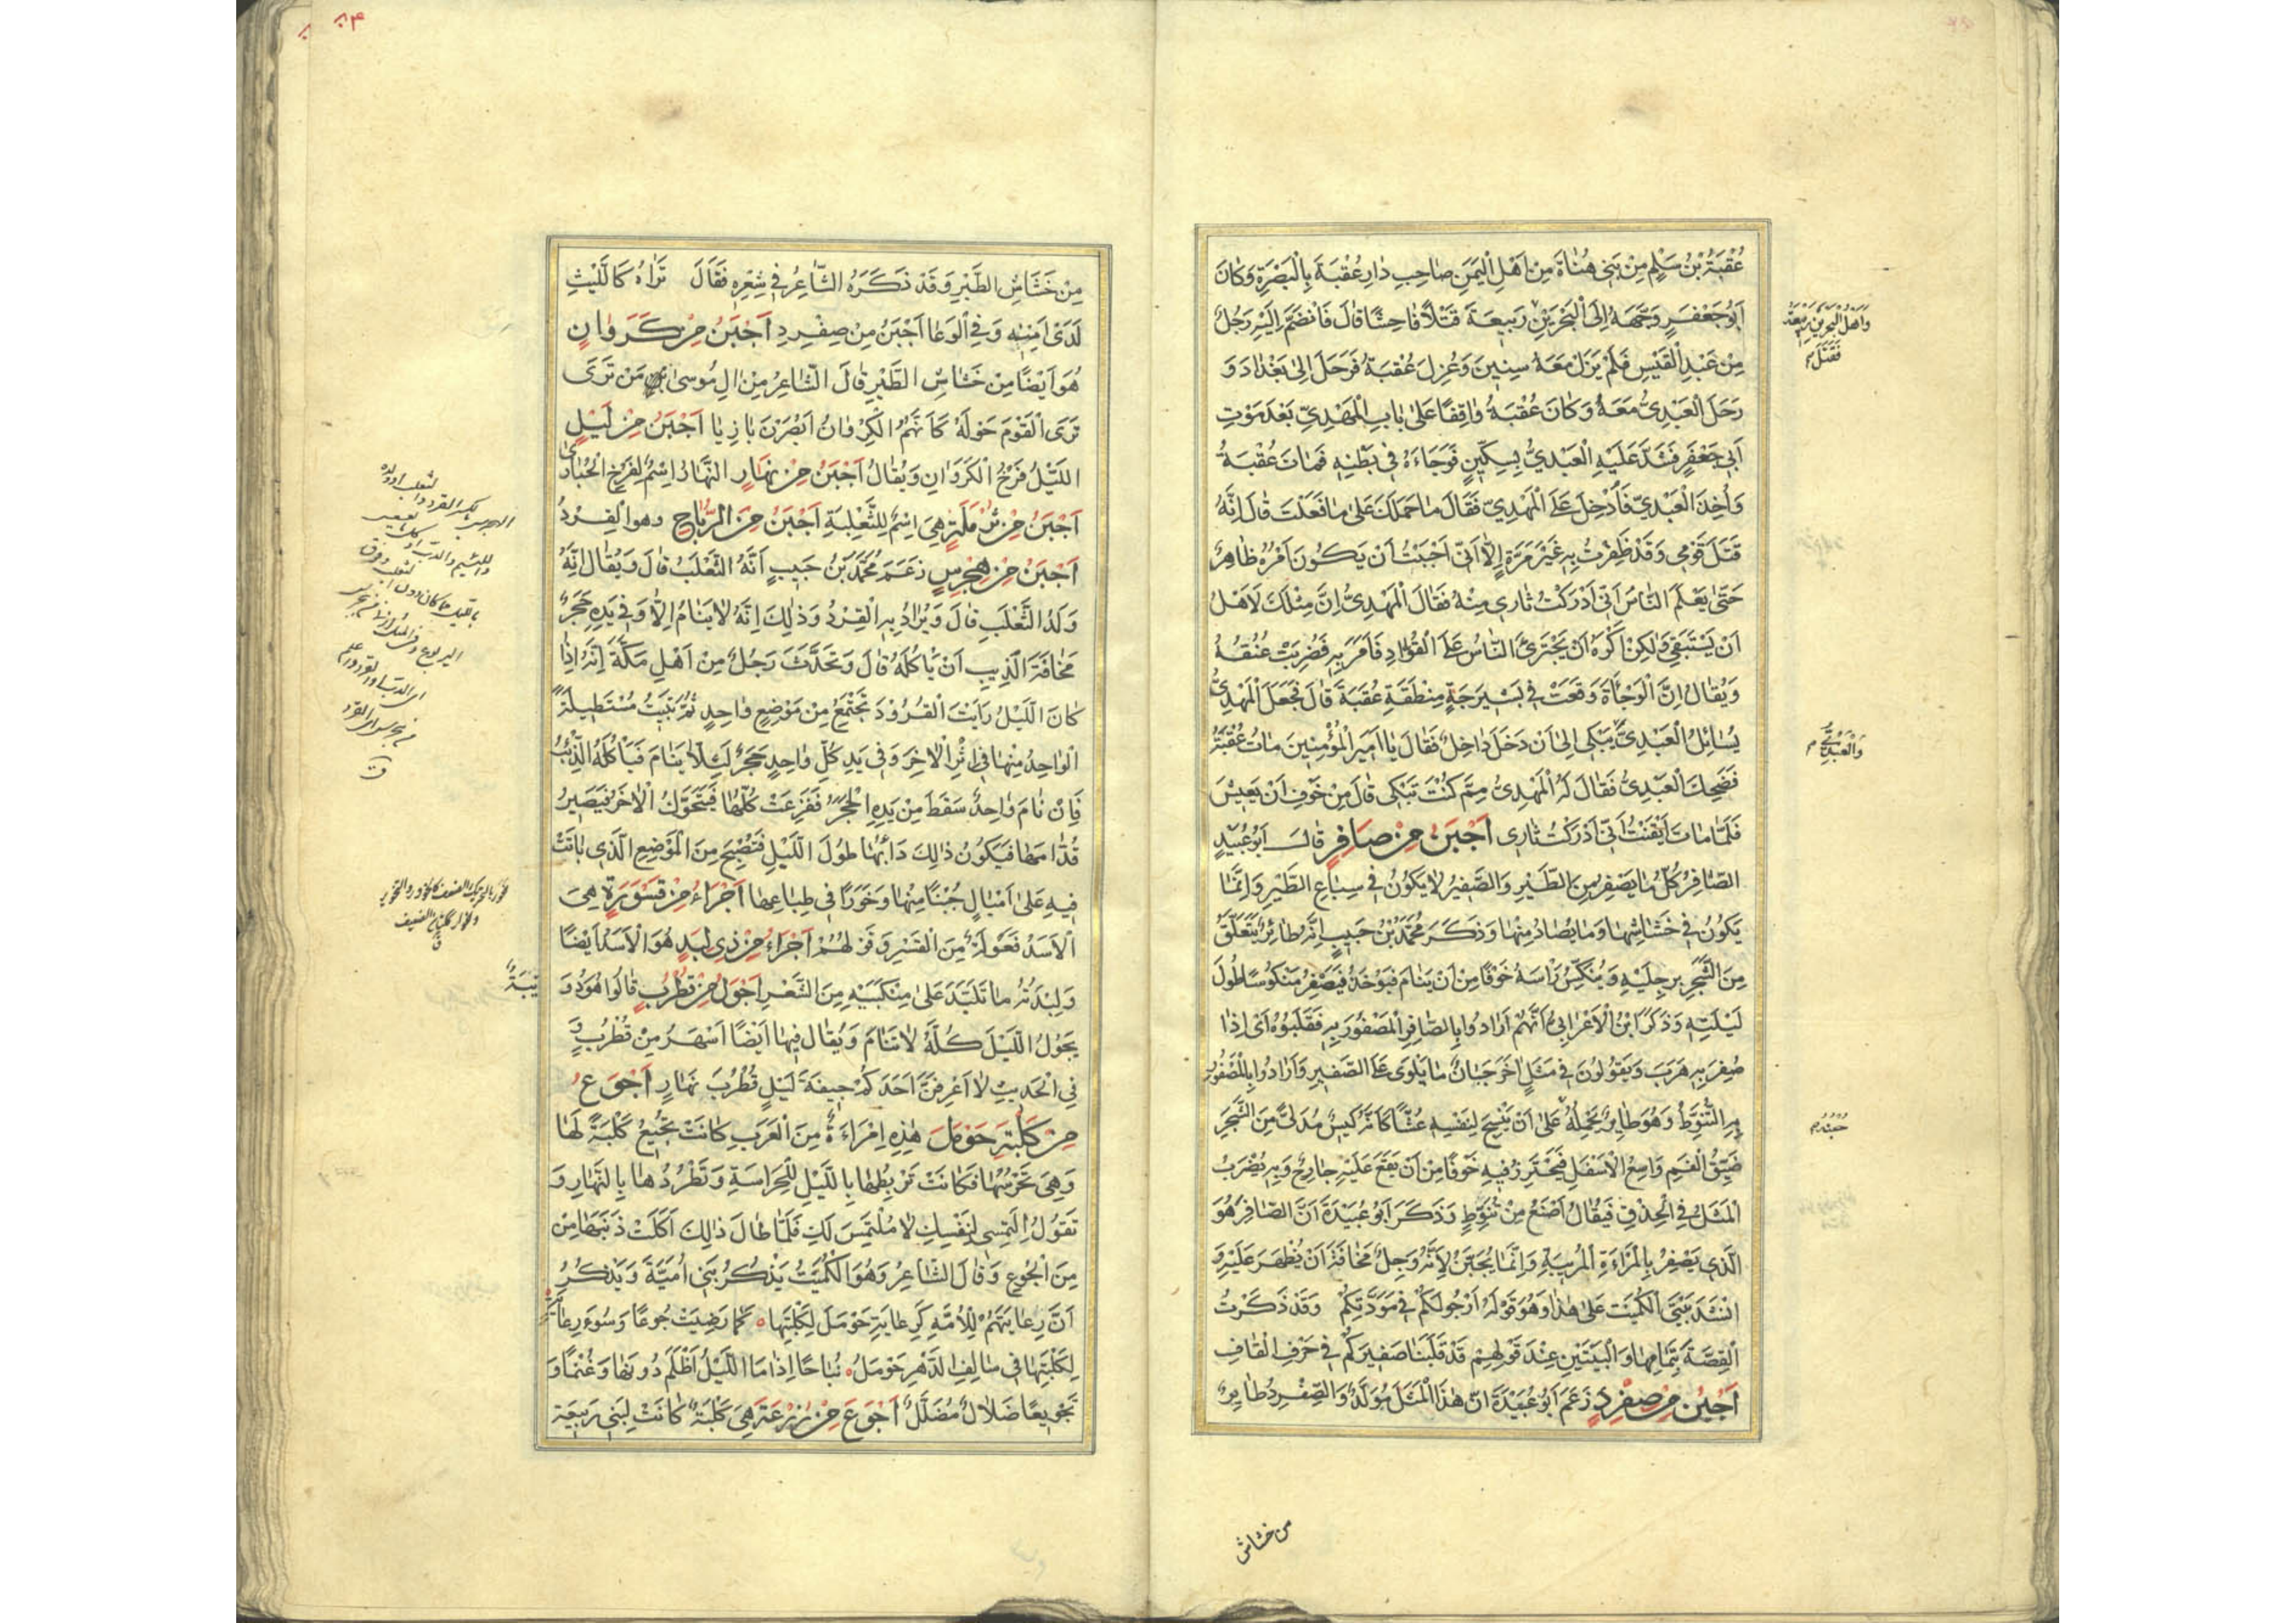 عُقْبَةُ بْنُ سَلِمٍ مِنْ بَنِي هُنَاةَ مِنْ اَهْلِ الْيَمَنِ صَاحِبِ دَارِ عُقْبَةَ بِالْبَصْرَةِ وَكَانَ
اَبُو جَعْفَرٍ وَجَّهَهُ اِلَى الْبَحْرَيْنِ رَبِيعَةَ قَتْلاً فَاحِشًا قَالَ فَانْضَمَّ اِلَيْهِ رَجُلٌ
مِنْ عَبْدِ الْقَيْسِ فَلَمْ يَزَلْ مَعَهُ سِنِينَ وَعُزِلَ عُقْبَةُ فَرَحَلَ اِلى بَغْدَادَ وَ
رَحَلَ الْعَبْدِىُّ مَعَهُ وَكَانَ عُقْبَةُ وَاقِفًا عَلى بَابِ الْمَهْدِىِّ بَعْدَ مَوْتِ
اَبِى جَعْفَرٍ فَشَدَّ عَلَيْهِ الْعَبْدِىُّ بِسِكِّينٍ فَوَجَاءَهُ فِى بَطْنِهِ فَمَاتَ عُقْبَةُ
وَاُخِذَ الْعَبْدِىّ فَاُدْخِلَ عَلَى الْمَهْدِىّ فَقَالَ مَا حَمَلَكَ عَلى مَا فَعَلْتَ قَالَ اِنَّهُ
قَتَلَ قَوْمِى وَقَدْ ظَفِرْتُ بِهِ غَيْرَ مَرَّةٍ اِلاَّ اَنِّى اَحْبَبْتُ اَنْ يَكُونَ اَمْرُهُ ظَاهِرً
حَتّى يَعْلَمَ النَّاسُ اَنِّى اَدْرَكْتُ ثَارِى مِنْهُ فَقَالَ الْمَهْدِىُّ اِنَّ مِثْلَكَ لَاَهْلٌ
اَنْ يُسْتَبْقى وَلكِنْ اَكْرَهُ اَنْ يَجْتَرِئَ النَّاسُ عَلَى الْقُوَّادِ فَاَمَرَ بِهِ فَضُرِبَتْ عُنُقُهُ
وَيُقَالُ اِنَّ الْوَجْأَةَ وَقَعَتْ فِى شِيرَجَةِ مِنْطَقَةِ عُقْبَةَ قَالَ فَجَعَلَ الْمَهْدِىُّ
يُسَائِلُ الْعَبْدِىَّ يَبْكِى اِلى اَنْ دَخَلَ دَاخِلٌ فَقَالَ يَا اَمِيرَ الْمُؤْمِنِينَ مَاتَ عُقْبَةُ
فَضَحِكَ الْعَبْدِىُّ فَقَالَ لَهُ الْمَهْدِىُّ مِمَّ كُنْتَ تَبْكِى قَالَ مِنْ خَوْفِ اَنْ يَعِيشَ
فَلَمَّا مَاتَ اَيْقَنْتُ اَنِّى اَدْرَكْتُ ثَارِى اَجْبَنُ مِنْ صَافِرٍ قَالَ اَبُو عُبَيْدٍ
الصَّافِرُ كُلُّ مَا يَصْفِرُ مِنَ الطَّيْرِ وَالصَّفِيرُ لَا يَكُونُ فِى سِبَاعِ الطَّيْرِ وَاِنَّمَا
يَكُونُ فِى خَشَاشِهَا وَمَا يُصَادُ مِنْهَا وَذَكَرَ مُحَمَّدُ بْنُ حَبِيبٍ اِنَّهُ طَائِرٌ يَتَعَلَّقُ
مِنَ الشَّجَرِ بِرِجْلَيْهِ وَيُنَكِّسُ رَاْسَهُ خَوْفًا مِنْ اَنْ يَنَامَ فَيُؤْخَذَ فَيَصْفِرُ مَنْكُوسًا طُولَ
لَيْلَتِهِ وَذَكَرَ ابْنُ الْاَعْرَابِىِّ اَنَّهُمْ اَرَادُوا بِالصَّافِرِ الْمَصْفُورَ بِهِ فَقَلَبُوهُ اَىْ اِذَا
صُفِرَ بِهِ هَرَبَ وَيَقُولُونَ فِى مَثَلٍ اخَرَ جَبَانٌ مَا يَلْوِى عَلَى الصَّفِيرِ وَاَرَادُوا بِالْمَصْفُورِ
بِهِ التُّنَوِّطَ وَهُوَ طَايِرٌ يَحْمِلُهُ عَلى اَنْ يَنْسِجَ لِنَفْسِهِ عُشًّا كَاَنَّهُ كِيسٌ مُدَلًّى مِنَ الشَّجَرِ
ضَيِّقُ الْفَمِ وَاسِعُ الْاَسْفَلِ فَيَحْتَرِزُ فِيهِ خَوْفًا مِنْ اَنْ يَقَعَ عَلَيْهِ جَارِحٌ وَبِهِ يُضْرَبُ
الْمَثَلُ فِى الْحِذْقِ فَيُقَالُ اَصْنَعُ مِنْ تُنَوِّطٍ وَذَكَرَ اَبُو عُبَيْدَةَ اَنَّ الصَّافِرَ هُوَ
الَّذِى يَصْفِرُ بِالْمَرْاَةِ الْمُرِيبَةِ وَاِنَّمَا يُجَبَّنُ لِاَنَّهُ وَجِلٌ مَخَافَةَ اَنْ يُظْهَرَ عَلَيْهِ وَ
اَنْشَدَ بَيْتَىِ الْكُمَيْتِ عَلى هذَا وَهُوَ قَوْلُهُ اَرْجُو لَكُمْ فِى مَوَدَّتِكُمْ وَقَدْ ذَكَرْتُ
الْقِصَّةَ بِتَمَامِهَا وَالْبَيْتَيْنِ عِنْدَ قَوْلِهِمْ قَدْ قَلَبْنَا صَفِيرَكُمْ فِى حَرْفِ الْقَافِ
اَجْبَنُ مِنْ صِفْرِدٍ زَعَمَ اَبُو عُبَيْدَةَ اَنَّ هذَا الْمَثَلَ مُوَلَّدٌ وَالصِّفْرِدُ طَايِرٌ
وَاَهْلُ الْبَحْرَيْنِ رَبِيعَةُ
فَقَتَلَ
وَالْعَبْدِىُّ
من خشاش
مِنْ خَشَاشِ الطَّيْرِ وَقَدْ ذَكَرَهُ الشَّاعِرُ فِى شِعْرِهِ فَقَالَ تَرَاهُ كَاللَّيْثِ
لَدى اَمْنِهِ وَفِى الْوَغَا اَجْبَنُ مِنْ صِفْرِدِ اَجْبَنُ مِنْ كَرَوَانٍ
هُوَ اَيْضًا مِنْ خَشَاشِ الطَّيْرِ قَالَ الشَّاعِرُ مِنْ الِ مُوسى مَنْ تَرَى
تَرَى الْقَوْمَ حَوْلَهُ كَاَنَّهُمُ الْكِرْوَانُ اَبْصَرْنَ بَازِيَا اَجْبَنُ مِنْ لَيْلٍ
اللَّيْلُ فَرْخُ الْكَرَوَانِ وَيُقَالُ اَجْبَنُ مِنْ نَهَارٍ النَّهَارُ اِسْمٌ لِفَرْخِ الْحُبَارى
اَجْبَنُ مِنْ ثُرْمُلَةٍ هِىَ اِسْمٌ لِلثَّعْلِبَةِ اَجْبَنُ مِنَ الرُّبَّاحِ وهو القِرْدُ
اَجْبَنُ مِنْ هِجْرِسٍ زَعَمَ مُحَمَّدُ بْنُ حَبِيبٍ اَنَّهُ الثَّعْلَبُ قَالَ وَيُقَالُ اِنَّهُ
وَلَدُ الثَّعْلَبِ قَالَ وَيُرَادُ بِهِ الْقِرْدُ وَذلِكَ اِنَّهُ لَا يَنَامُ اِلاَّ وَفِى يَدِهِ حَجَرٌ
مَخَافَةَ الَّذِيبِ اَنْ يَاكُلَهُ قَالَ وَتَحَدَّثَ رَجُلٌ مِنْ اَهْلِ مَكَّةَ اِنَّهُ اِذَا
كَانَ اللَّيْلُ رَاَيْتَ الْقُرُودَ تَجْتَمِعُ مِنْ مَوْضِعٍ وَاحِدٍ ثُمَّ تَبِيتُ مُسْتَطِيلَةً
الْوَاحِدُ مِنْهَا فِى اِثْرِ الْاخَرِ وَفِى يَدِ كُلِّ وَاحِدٍ حَجَرٌ لِئَلاَّ يَنَامَ فَيَاْكُلَهُ الذِّئْبُ
فَاِنْ نَامَ وَاحِدٌ سَقَطَ مِنْ يَدِهِ الْحَجَرُ فَفَزِعَتْ كُلُّهَا فَيَتَحَوَّلُ الْاخَرُ فَيَصِيرُ
قُدَّامَهَا فَيَكُونُ ذلِكَ دَاْبُهَا طُولَ اللَّيْلِ فَتُصْبِحُ مِنَ الْمَوْضِعِ الَّذِى بَاتَتْ
فِيهِ عَلى اَمْيَالٍ جُبْنًا مِنْهَا وَخَوَرًا فِى طِبَاعِهَا اَجْرَاءُ مِنْ قَسْوَرَةٍ هِىَ
الْاَسَدُ فَعْوَلَةٌ مِنَ الْقَسْرِ وَقَوْلهُمْ اَجْرَاءُ مِنْ ذِى لِبَدٍ هُوَ الْاَسَدُ اَيْضًا
وَلِبْدَتُهُ مَا تَلَبَّدَ عَلى مِنْكَبَيْهِ مِنَ الشَّعْرِ اَجْوَلُ مِنْ قُطْرُبٍ قَالُوا هُوَ دُوَ
يْبَةٌ
يَجُولُ اللَّيْلَ كُلَّهُ لَا تَنَامُ وَيُقَالُ فِيهَا اَيْضًا اَسْهَرُ مِنْ قُطْرُبٍ وَ
فِى الْحَدِيثِ لَا اَعْرِفَنَّ اَحَدَكُمْ جِيفَةَ لَيْلٍ قُطْرُبَ نَهَارٍ اَجْوَعُ
مِنْ كَلْبَةِ حَوْمَلَ هذِهِ اِمْرَاءَةٌ مِنَ الْعَرَبِ كَانَتْ تُجِيعُ كَلْبَةً لَهَا
وَهِىَ تَحْرُسُهَا فَكَانَتْ تَرْبِطُهَا بِاللَّيْلِ لِلْحِرَاسَةِ وَتَطْرُدُهَا بِالنَّهَارِ وَ
تَقُولُ اِلْتَمِسِى لِنَفْسِكِ لَا مُلْتَمَسَ لَكِ فَلَمَّا طَالَ ذلِكَ اَكَلَتْ ذَنَبَهَا مِنْ
مِنَ الْجُوعِ وَقَالَ الشَّاعِرُ وَهُوَ الْكُمَيْتُ يَذْكُرُ بَنِى اُمَيَّةَ وَيَذْكُرُ
اَنَّ رِعَايَتَهُمْ لِلْاُمَّةِ كَرِعَايَةِ حَوْمَلَ لِكَلْبَتِهَا كَمَا رَضِيَتْ جُوعًا وَسُوءَ رِعَايَةٍ
لِكَلْبَتِهَا فِى سَالِفِ الدَّهْرِ حَوْمَلُ نُبَاحًا اِذَا مَا اللَّيْلُ اَظْلَمَ دُونَهَا وَغُنْمًا وَ
تَجْوِيعًا ضَلَالٌ مُضَلَّلُ اَجْوَعُ مِنْ زُرْعَةَ هِىَ كَلْبَةٌ كَانَتْ لِبَنِى رَبِيعَةَ